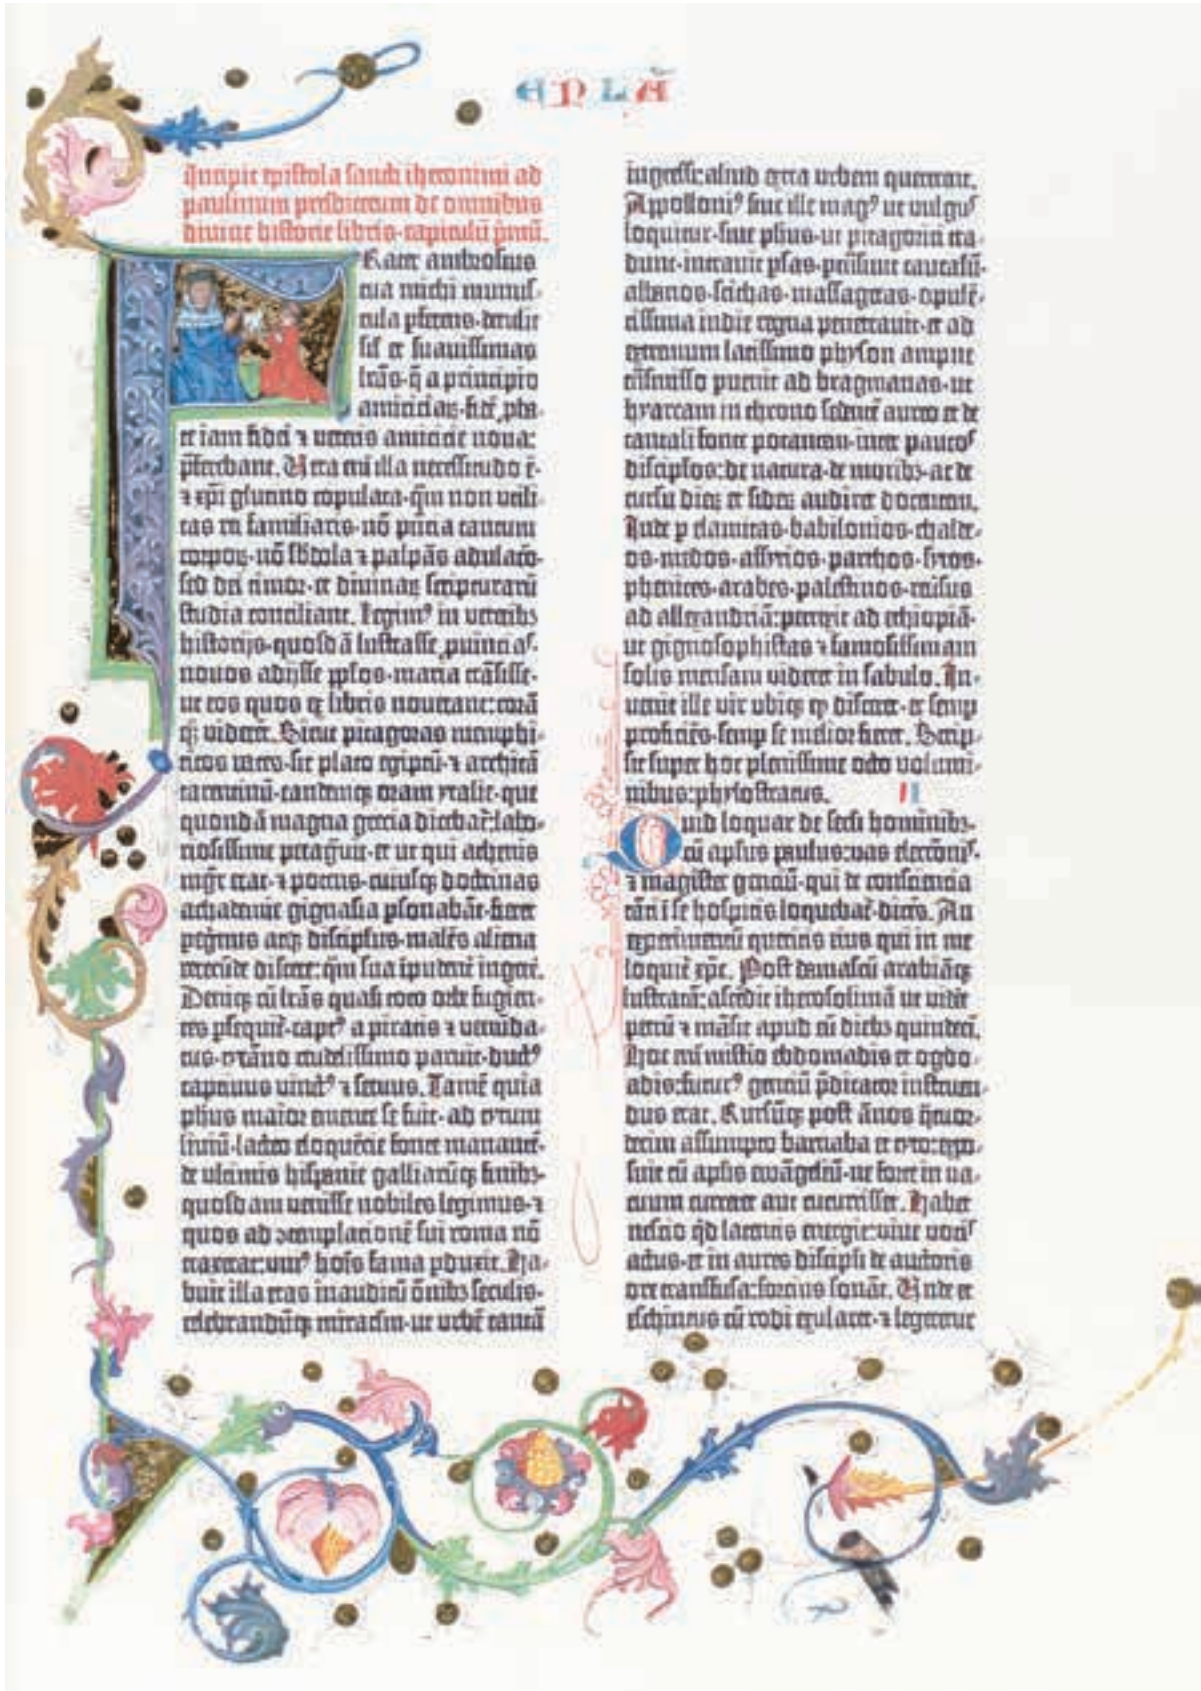 EPLĀ
Incipit epistola sancti iheronimi ad
paulinum presbiterum de omnibus
divine historie libris. capitulū p̄mū.
Frater ambrosius
tua michi munus-
cula pferens. detulit
sil et suavissimas
lrās. q̄ a principio
amiciciaꝝ. fidē pba-
te iam fidei ⁊ veteris amicicie nova:
pferebant. Vera em̄ illa necessitudo ē.
⁊ xpi glutino copulata. qm̄ non utili-
tas rei familiaris. nō pn̄cia tantum
corpoꝝ. nō sb̄dola ⁊ palpās adulaco.
sed dei timor. et divinaꝝ scripturarū
studia conciliant. Legimꝰ in veteribꝫ
historijs. quosdā lustrasse puincias.
novos adijsse pplos. maria trāsisse.
ut eos quos ex libris noverant: corā
qꝫ viderēt. Sicut pitagoras memphi-
ticos vates. sic plato egiptū. ⁊ architā
tarentinū. eandemqꝫ oram ytalie. que
quondā magna grecia dicebat: labo-
riosissime peragvit. et ut qui athenis
mgr̄ erat. ⁊ potens. cuiusqꝫ doctrinas
achademie gignasia psonabāt. fieret
pegrinus atqꝫ discipulus. malēs aliena
verecūde discere: qm̄ sua īpudent ingere.
Deniqꝫ cū lrās quasi toto orbe fugien-
tes psequit̄. captꝰ a piratis ⁊ venūda-
tus. tyrāno crudelissimo paruit. ductꝰ
captivus vinctꝰ ⁊ servus. Tamē quia
phus maior emente se fuit. ad tytum
livium. lacteo eloquētie fonte manante.
de ultimis hispanie galliarūqꝫ finibꝫ.
quosdam venisse nobiles legimus. ⁊
quos ad ꝯtemplacionē sui roma nō
traxerat: uniꝰ hois fama pduxit. Ha-
buit illa etas inauditū oībꝫ seculis.
celebrandūqꝫ miraclm. ut urbē tantā
ingressi: aliud extra urbem quererent.
Apolloniꝰ sive ille magꝰ ut vulgus
loquitur. sive phus. ut pitagorici tra-
dunt. intravit psas. ptn̄sivit caucasū.
albanos. scithas. massagetas. opulē-
tissima indie regna penetravit. et ad
extremum latissimo physon ampne
tn̄smisso pvenit ad bragmanas. ut
hyarcam in throno sedentē aureo et de
tantali fonte potantem. inter paucos
discipulos: de natura. de moribꝫ. ac de
cursu dieꝝ et sideꝝ audiret docentem.
Inde p elamitas. babilonios. chalde-
os. medos. assyrios. parthos. syros.
phenices. arabes. palestinos. reversus
ad allexandriā: perrexit ad ethiopiā.
ut gignosophistas ⁊ famosissimam
solis mensam videret in sabulo. In-
venit ille vir ubiqꝫ qꝫ disceret. et semp
proficiēs. semp se melior fieret. Scrip-
sit super hoc plenissime octo volumi-
nibus: phylostratus. II
Quid loquar de secli hominibꝫ.
cū aplus paulus: vas electōnis.
⁊ magister genciū. qui de consciencia
tāti ī se hospitis loquebat. dices. An
experimentū queritis eius qui in me
loquit̄ xpc. Post damascū arabiāqꝫ
lustratā: ascēdit iherosolimā ut videt
petrū ⁊ māsit apud eū diebꝫ quindecī.
Hoc em̄ misterio ebdomadis et ogdo-
adis: futurꝰ genciū p̄dicator instruen-
dus erat. Rursūqꝫ post ānos qͣtuor-
decim assumpto barnaba et tyto: expo-
suit cū aplis evāgelium. ne forte in va-
cuum curreret aut cucurrisset. Habet
nescio qͥd latentis energie: vive vocis
actus. et in aures discipli de auctoris
ore transfusa: forcius sonat. Unde et
eschineus cū rodi exularet. ⁊ legeretur